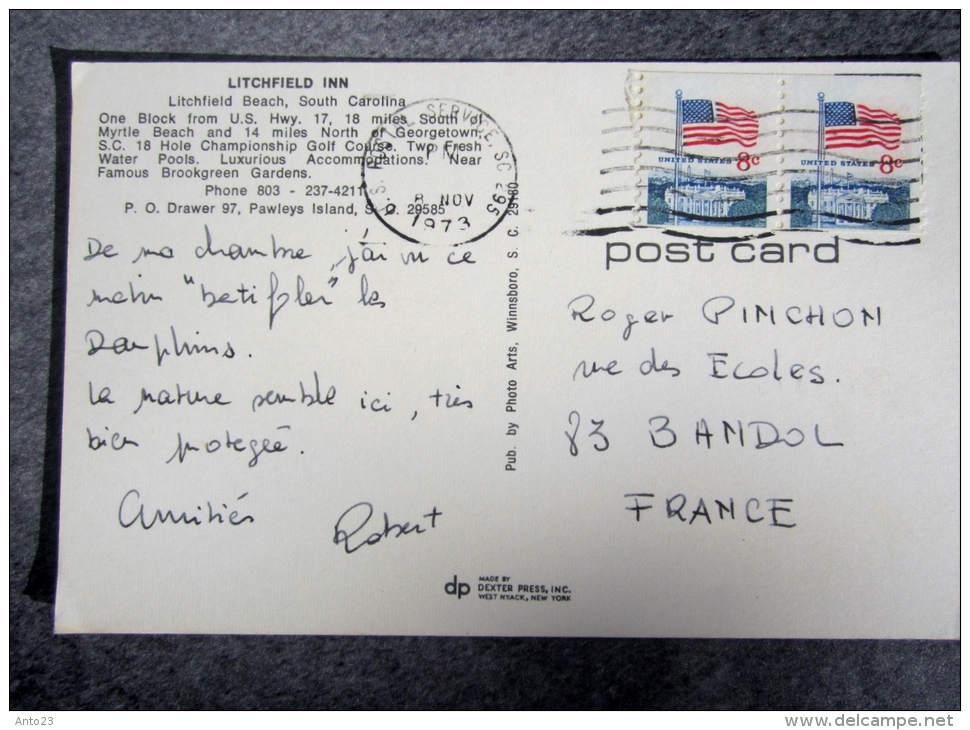 LITCHFIELD INN
Litchfield Beach, South Carolina
One Block from U.S. Hwy. 17, 18 miles South of
Myrtle Beach and 14 miles North of Georgetown,
S.C. 18 Hole Championship Golf Course. Two Fresh
Water Pools. Luxurious Accommodations. Near
Famous Brookgreen Gardens.
Phone 803 - 237-4211
P. O. Drawer 97, Pawleys Island, S. C. 29585
De ma chambre, j'ai vu ce
matin "batifoler" les
Dauphins.
La nature semble ici, très
bien protegée.
Amitiés
Robert
U.S. POSTAL SERVICE, SC 295
PM
8 NOV
1973
Pub. by Photo Arts, Winnsboro, S. C. 29180
UNITED STATES 8c
UNITED STATES 8c
post card
Roger PINCHON
rue des Ecoles.
83 BANDOL
FRANCE
dp
MADE BY
DEXTER PRESS, INC.
WEST NYACK, NEW YORK
Anto23
delcampe.net